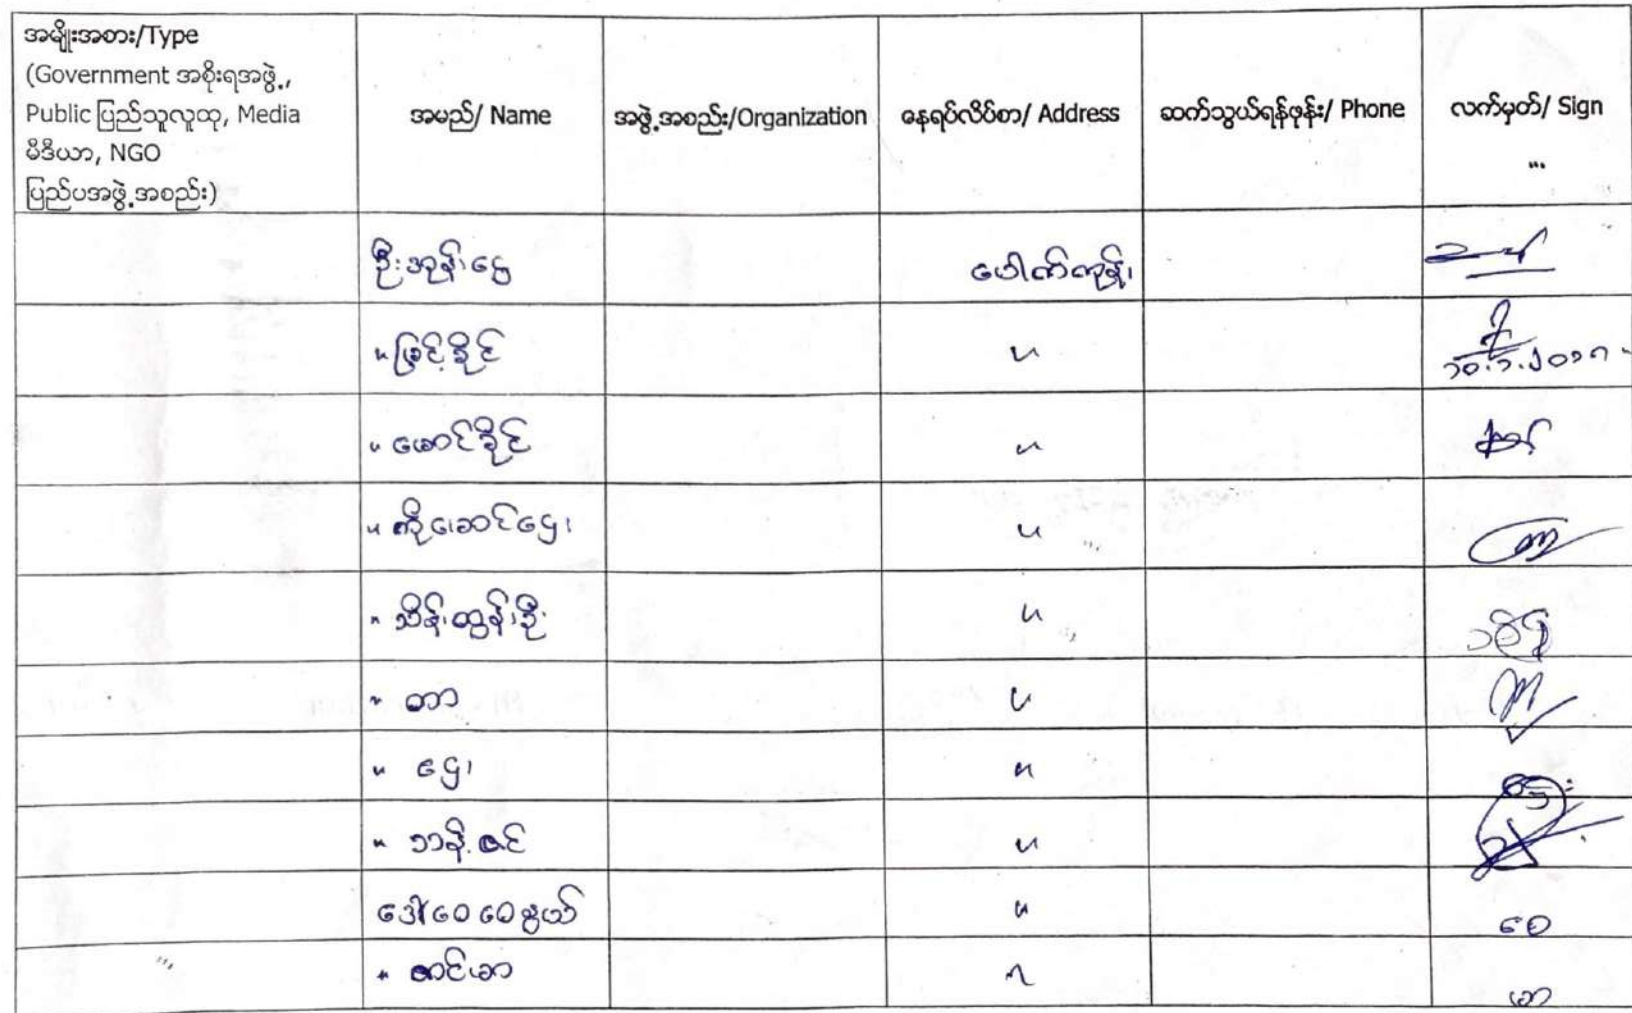 အမျိုးအစား/Type
(Government အစိုးရအဖွဲ့,
Public ပြည်သူလူထု, Media
မီဒီယာ, NGO
ပြည်ပအဖွဲ့အစည်း)
အမည်/ Name
အဖွဲ့အစည်း/Organization
နေရပ်လိပ်စာ/ Address
ဆက်သွယ်ရန်ဖုန်း/ Phone
လက်မှတ်/ Sign
ဦးအုန်းငွေ ပေါက်ကုန်း
" မြင့်ခိုင် "
" မောင်ခိုင် "
" ကိုအောင်ဌေး "
" သိန်းထွန်းဦး "
" တာ "
" ဌေး "
" ဘန့်ဇင် "
ဒေါ်ဝေဝေနွယ် " ဝေ
" ဇာင်မာ " မာ